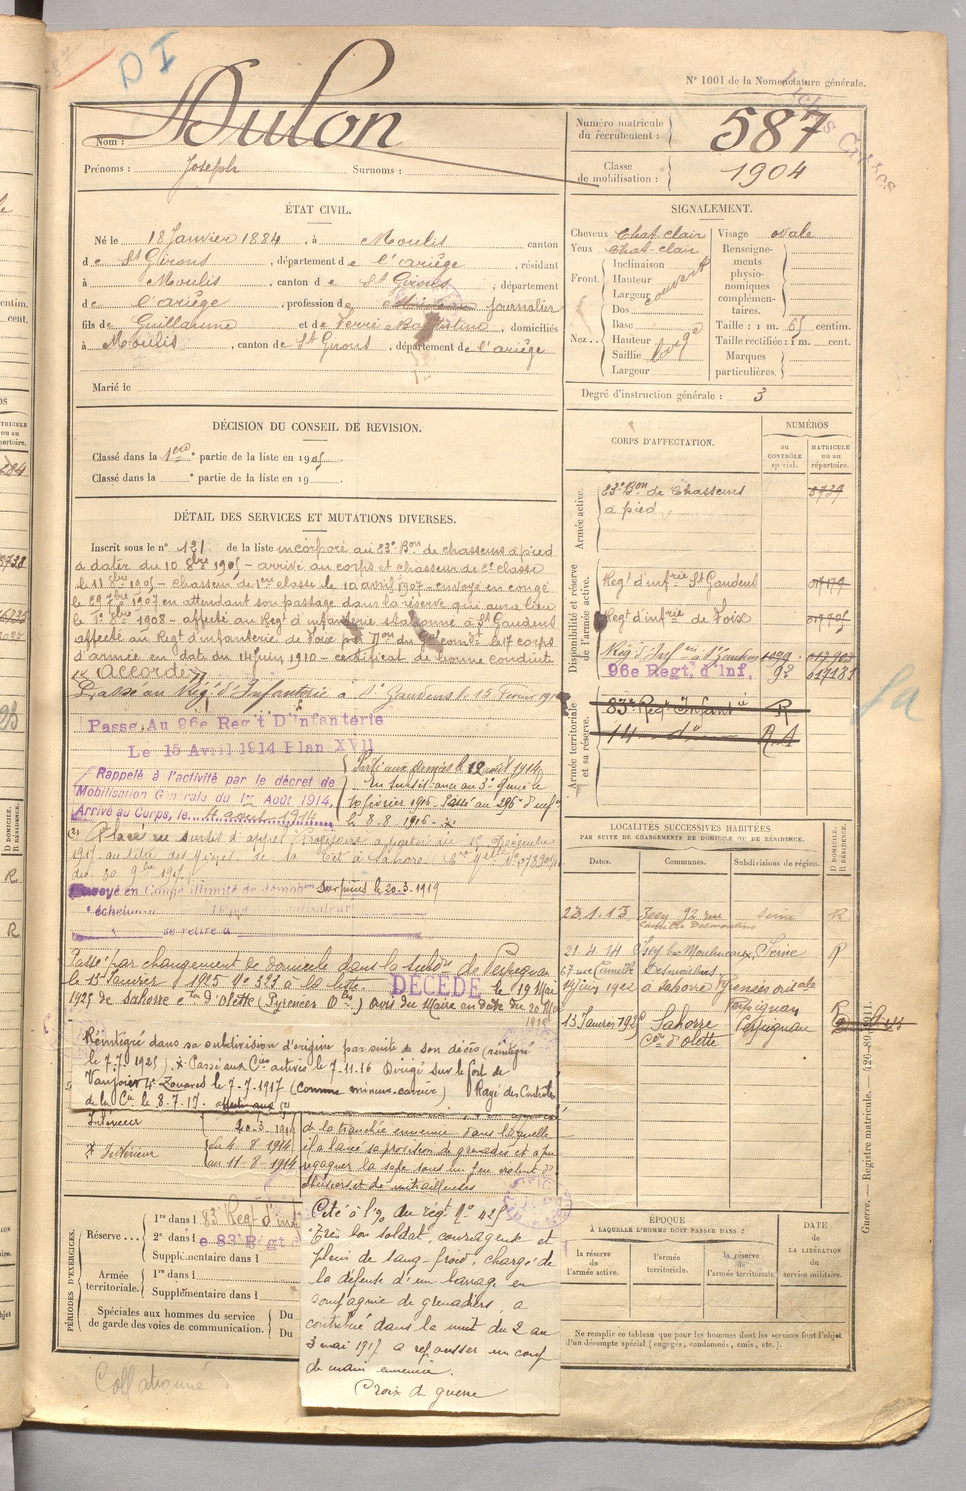 DI
N° 1001 de la Nomenclature générale.
Nom : Dulon
Prénoms : Joseph Surnoms :
Numéro matricule du recrutement : 587
Classe de mobilisation : 1904
ÉTAT CIVIL.
Né le 18 Janvier 1884, à Moulis canton
de St Girons, département de l'ariège, résidant
à Moulis, canton de St Girons, département
de l'ariège, profession de journalier
fils de Guillaume et de Ferré Baptistine, domiciliés
à Moulis, canton de St Girons, département de l'ariège
Marié le
SIGNALEMENT.
Cheveux Chat. clair
Yeux Chat. clair
Front. Inclinaison
Hauteur
Largeur
couvert
Nez.. Dos
Base
Hauteur
Saillie
Largeur
large
Visage ovale
Renseignements physionomiques complémentaires.
Taille : 1 m. 65 centim.
Taille rectifiée : 1 m. cent.
Marques particulières.
Degré d'instruction générale : 3
DÉCISION DU CONSEIL DE REVISION.
Classé dans la 1ère partie de la liste en 1905
Classé dans la ° partie de la liste en 19
CORPS D'AFFECTATION.
NUMÉROS
AU CONTRÔLE spécial.
MATRICULE ou au répertoire.
Armée active.
23e Bon de Chasseurs
à pied
Disponibilité et réserve de l'armée active.
Regt d'infrie St Gaudens
Regt d'infrie de Foix
Reg. d'Inf. à St Gaudens 1099
96e Regt. d'Inf.
Armée territoriale et sa réserve.
83e Regt Infant R
14 do RA
DÉTAIL DES SERVICES ET MUTATIONS DIVERSES.
Inscrit sous le n° 121 de la liste incorporé au 23e Bon de chasseurs à pied
à dater du 10 8bre 1905 – arrivé au corps et chasseur de 2e classe
le 11 8bre 1905 – chasseur de 1ère classe le 10 avril 1907 – envoyé en congé
le 29 7bre 1907 en attendant son passage dans la réserve qui aura lieu
le 1er 8bre 1908 – affecté au Regt d'infanterie stationné à St Gaudens
affecté au Regt d'infanterie de Foix par Don du Gal Comdt le 17 corps
d'armée en date du 14 juin 1910 – certificat de bonne conduite
"accordé"
Passé au Rég. d'Infanterie à St Gaudens le 15 Février
Passe Au 96e Reg't D'Infanterie
Le 15 Avril 1914 Plan XVII
Rappelé à l'activité par le décret de
Mobilisation Générale du 1er Août 1914.
Arrivé au Corps, le 4 aout 1914
Parti aux armées le 12 août 1914
10 février 1916. Passé au 296e d'inf
le 8-8-1916
Placé en sursit d'appel
30 9bre 1917
Envoyé en Congé illimité de démobon le 20.3.1919
échelon
se retire à
Passé par changement de domicile dans la subdon de Perpignan
le 15 Janvier 1925 N° 323 à la liste. DÉCÉDÉ le 19 Mai
1925 de Sahorre con d'Olette (Pyrénées Oles) avis du Maire en date du 20 Mai
1925
Réintégré dans sa subdivision d'origine par suite de son décès (réintégré
le 7.7.1925). Passé aux Cies actives le 7.11.16 Dirigé sur le fort de
Vaujours 4e Zouaves le 7.7.1917 (comme mineur-carrier) Rayé des Contrôles
de la Cie le 8.7.17.
Intérieur 20.3.1914
Intérieur du 4.8.1914
au 11-8-1914
de la tranchée ennemie dans laquelle
il a lancé sa provision de grenades et a pu
regagner la sape sous un feu violent de
et de mitrailleuses
Cité à l'O/ du régt N° 425
Très bon soldat, courageux et
plein de sang-froid, chargé de
la défense d'un barrage en
compagnie de grenadiers, a
contribué dans la nuit du 2 au
3 mai 1917 à repousser un coup
de main ennemi.
Croix de guerre
LOCALITÉS SUCCESSIVES HABITÉES
PAR SUITE DE CHANGEMENTS DE DOMICILE OU DE RÉSIDENCE.
Dates. Communes. Subdivisions de région. D DOMICILE. R RÉSIDENCE.
23.1.13 Issy 92 rue Camille Desmoulins Seine R
21 4 14 Issy les Moulineaux Seine R
67 rue Camille Desmoulins
14 juin 1922 à Sahorre Pyrénées orientale
Perpignan R
15 Janvier 1925 Sahorre Perpignan
Con d'Olette
PÉRIODES D'EXERCICES.
Réserve... 1re dans l 83e Regt d'inf
2e dans l e 83e Regt d
Supplémentaire dans l
Armée territoriale. 1re dans l
Supplémentaire dans l
Spéciales aux hommes du service de garde des voies de communication. Du
Du
ÉPOQUE
À LAQUELLE L'HOMME DOIT PASSER DANS :
la réserve de l'armée active.
l'armée territoriale.
la réserve de l'armée territoriale
DATE de LA LIBÉRATION du service militaire.
Ne remplir ce tableau que pour les hommes dont les services font l'objet
d'un décompte spécial (engagés, condamnés, omis, etc.).
Guerre. — Registre matricule. — 426-89-1911.
Collationné